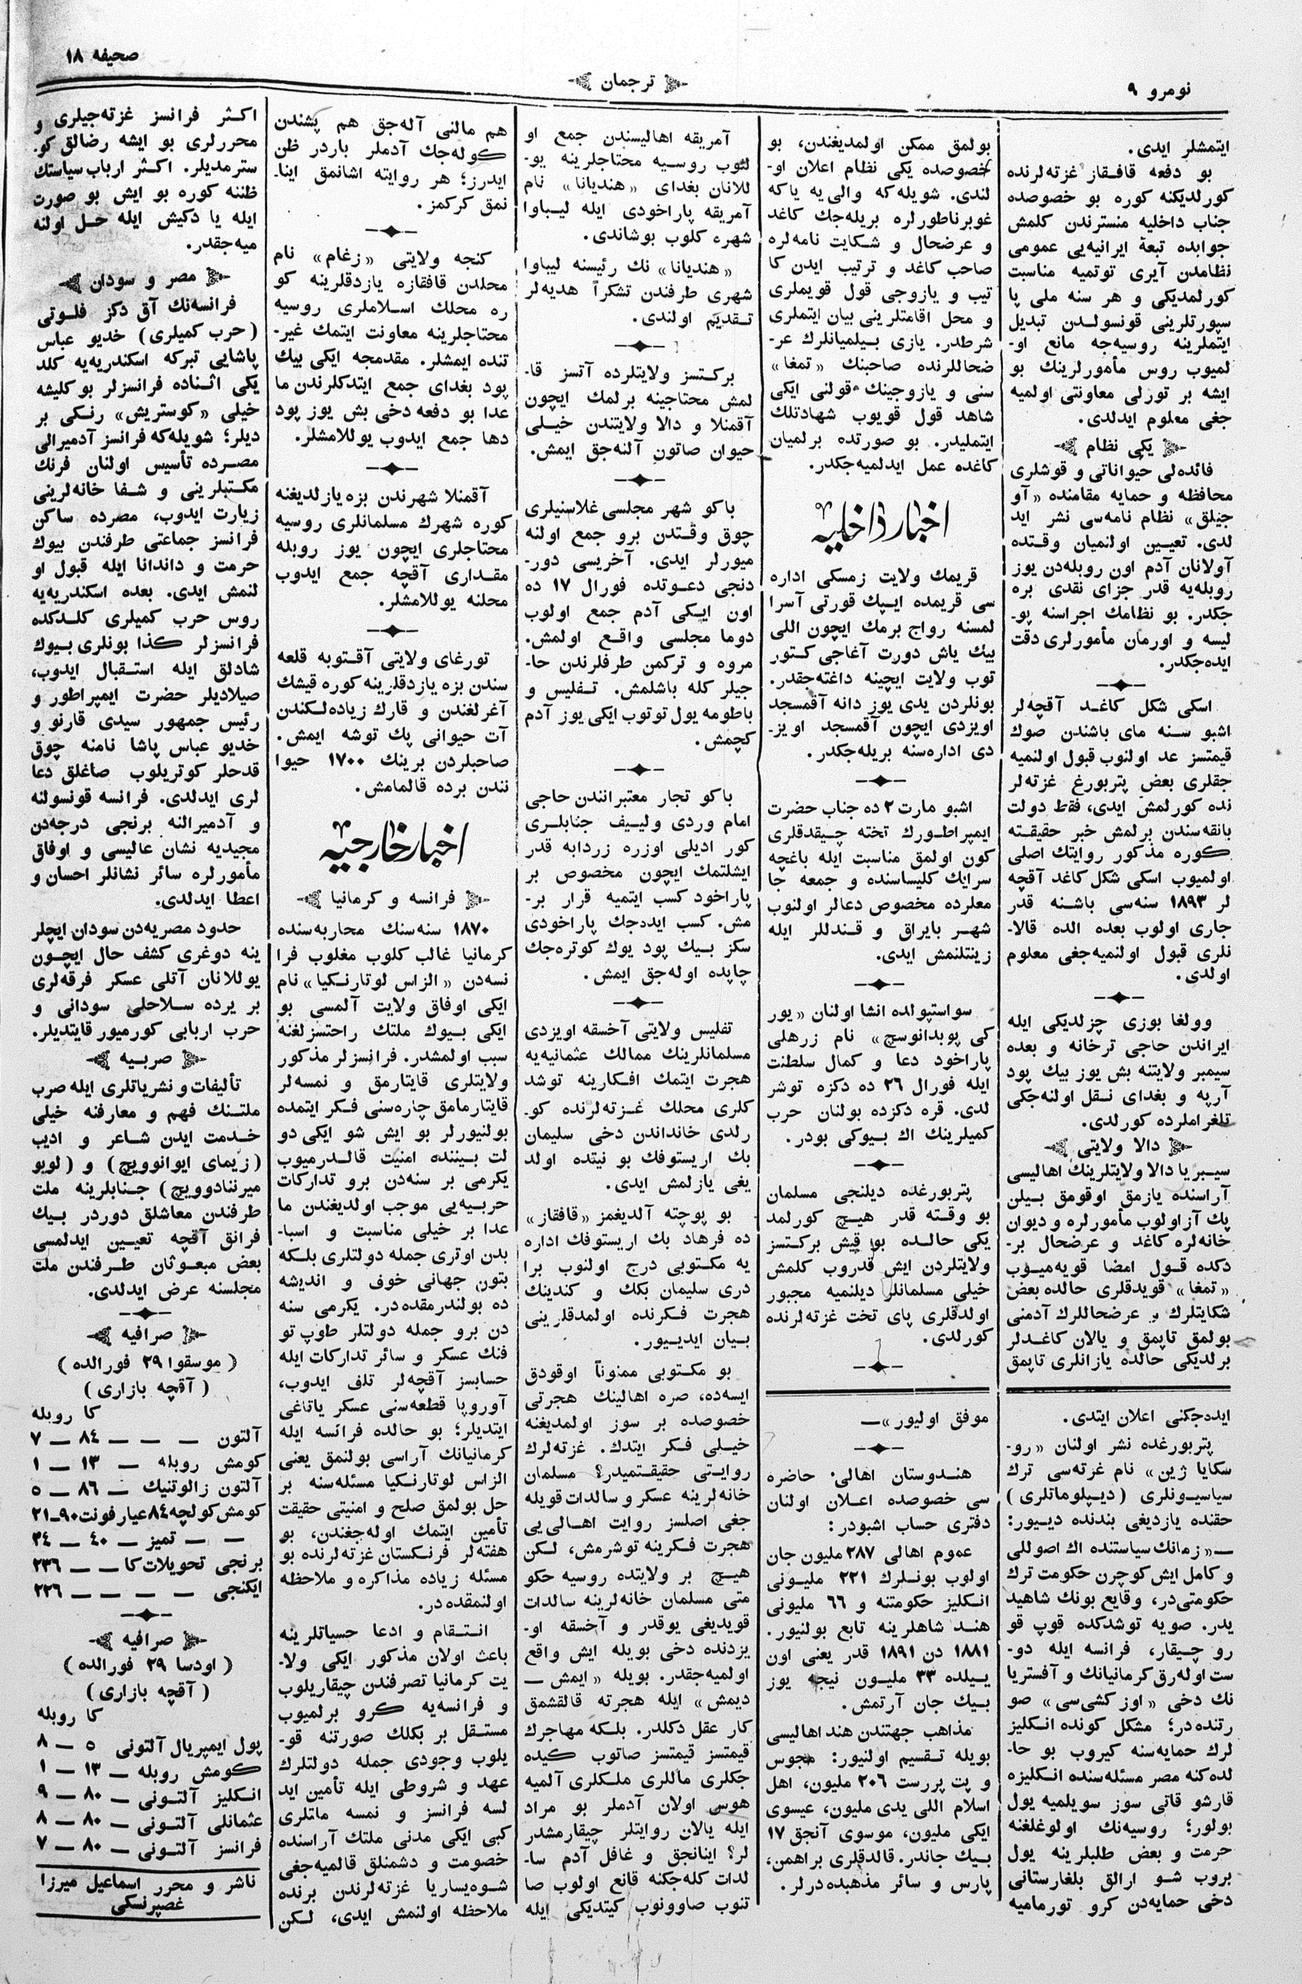 نومرو ٩
ترجمان
صحیفه ١٨
ایتمشلر ایدی.
بو دفعه قافقاز غزته‌لرنده
كورلدیكنه كوره بو خصوصده
جناب داخلیه منسترندن كلمش
جوابده تبعهٔ ایرانیه‌یی عمومی
نظامدن آیری توتمیه مناسبت
كورلمدیكی و هر سنه ملی پا
سپورتلرینی قونسولدن تبدیل
ایتملرینه روسیه‌جه مانع او-
لمیوب روس مأمورلرینك بو
ایشه بر تورلی معاونتی اولمیه
جغی معلوم ایدلدی.
یكی نظام
فائده‌لی حیواناتی و قوشلری
محافظه و حمایه مقامنده «آو
جیلق» نظام نامه‌سی نشر اید
لدی. تعیین اولنمیان وقتده
آولانان آدم اون روبله‌دن یوز
روبله‌یه قدر جزای نقدی بره
جكدر. بو نظامك اجراسنه پو-
لیسه و اورمان مأمورلری دقت
ایده‌جكدر.
اسكی شكل كاغد آقچه‌لر
اشبو سنه مای باشندن صوك
قیمتسز عد اولنوب قبول اولنمیه
جقلری بعض پتربورغ غزته‌لر
نده كورلمش ایدی، فقط دولت
بانقه‌سندن برلمش خبر حقیقته
كوره مذكور روایتك اصلی
اولمیوب اسكی شكل كاغد آقچه
لر ١٨٩٣ سنه‌سی باشنه قدر
جاری اولوب بعده الده قالا-
نلری قبول اولنمیه‌جغی معلوم
اولدی.
وولغا بوزی چزلدیكی ایله
ایراندن حاجی ترخانه و بعده
سیمبر ولایتنه بش یوز بیك پود
آرپه و بغدای نقل اولنه‌جكی
تلغرامارده كورلدی.
دالا ولایتی
سیبریا دالا ولایتلرینك اهالیسی
آراسنده یازمق اوقومق بیلن
پك آز اولوب مأمورلره و دیوان
خانه‌لره كاغد و عرضحال بر-
دكده قول امضا قویه‌میوب
«تمغا» قویدقلری حالده بعض
شكایتلرك و عرضحاللرك آدمنی
بولمق تاپمق و یالان كاغدلر
برلدیكی حالده یازانلری تاپمق
بولمق ممكن اولمدیغندن، بو
خصوصده یكی نظام اعلان او-
لندی. شویله‌كه والی‌یه یا‌كه
غوبرناطورلره بریله‌جك كاغد
و عرضحال و شكایت نامه‌لره
صاحب كاغد و ترتیب ایدن كا
تیب و یازوجی قول قویملری
و محل اقامتلرینی بیان ایتملری
شرطدر. یازی بیلمیانلرك عر-
ضحاللرنده صاحبنك «تمغا»
سنی و یازوجینك قولنی ایكی
شاهد قول قویوب شهادتلك
ایتملیدر. بو صورتده برلمیان
كاغده عمل ایدلمیه‌جكدر.
اخبار داخلیه
قریمك ولایت زمسكی اداره
سی قریمده ایپك قورتی آسرا
لمسنه رواج برمك ایچون اللی
بیك یاش دورت آغاجی كتور
توب ولایت ایچینه داغته‌جقدر.
بونلردن یدی یوز دانه آقمسجد
اویزدی ایچون آقمسجد اویز-
دی اداره‌سنه بریله‌جكدر.
اشبو مارت ٢ ده جناب حضرت
ایمپراطورك تخته چیقدقلری
كون اولمق مناسبت ایله باغچه
سرایك كلیساسنده و جمعه جا
معلرده مخصوص دعالر اولنوب
شهر بایراق و قندللر ایله
زینتلنمش ایدی.
سواستپولده انشا اولنان «یور
كی پوبدانوسچ» نام زرهلی
پاراخود دعا و كمال سلطنت
ایله فورال ٢٦ ده دكزه توشر
لدی. قره دكزده بولنان حرب
كمیلرینك اك بیوكی بودر.
پتربورغده دیلنجی مسلمان
بو وقته قدر هیچ كورلمد
یكی حالده بو قیش بركتسز
ولایتلردن ایش قدروب كلمش
خیلی مسلمانلر دیلنمیه مجبور
اولدقلری پای تخت غزته‌لرنده
كورلدی.
آمریقه اهالیسندن جمع او
لنوب روسیه محتاجلرینه یو-
للانان بغدای «هندیانا» نام
آمریقه پاراخودی ایله لیباوا
شهره كلوب بوشاندی.
«هندیانا» نك رئیسنه لیباوا
شهری طرفندن تشكراً هدیه‌لر
تقدیم اولندی.
بركتسز ولایتلرده آتسز قا-
لمش محتاجینه برلمك ایچون
آقمنلا و دالا ولایتندن خیلی
حیوان صاتون آلنه‌جق ایمش.
باكو شهر مجلسی غلاسنیلری
چوق وقتدن برو جمع اولنه
میورلر ایدی. آخریسی دور-
دنجی دعوتده فورال ١٧ ده
اون ایكی آدم جمع اولوب
دوما مجلسی واقع اولمش.
مروه و تركمن طرفلرندن حا-
جیلر كله باشلمش. تفلیس و
باطومه یول توتوب ایكی یوز آدم
كچمش.
باكو تجار معتبرانندن حاجی
امام وردی ولییف جنابلری
كور ادیلی اوزره زردابه قدر
ایشلتمك ایچون مخصوص بر
پاراخود كسب ایتمیه قرار بر-
مش. كسب ایده‌جك پاراخودی
سكز بیك پود یوك كوتره‌جك
چاپده اوله‌جق ایمش.
تفلیس ولایتی آخسقه اویزدی
مسلمانلرینك ممالك عثمانیه‌یه
هجرت ایتمك افكارینه توشد
كلری محلك غزته‌لرنده كو-
رلدی خانداندن دخی سلیمان
بك اریستوفك بو نیتده اولد
یغی یازلمش ایدی.
بو پوچته آلدیغمز «قافقاز»
ده فرهاد بك اریستوفك اداره
یه مكتوبی درج اولنوب برا
دری سلیمان بكك و كندینك
هجرت فكرنده اولمدقلرینی
بیان ایدییور.
بو مكتوبی ممنوناً اوقودق
ایسه‌ده، صره اهالینك هجرتی
خصوصده بر سوز اولمدیغنه
خیلی فكر ایتدك. غزته‌لرك
روایتی حقیقتمیدر؟ مسلمان
خانه‌لرینه عسكر و سالدات قویله
جغی اصلسز روایت اهالی‌یی
هجرت فكرینه توشرمش، لكن
هیچ بر ولایتده روسیه حكو
متی مسلمان خانه‌لرینه سالدات
قویدیغی یوقدر و آخسقه او-
یزدنده دخی بویله ایش واقع
اولمیه‌جقدر. بویله «ایمش —
دیمش» ایله هجرته قالقشمق
كار عقل دكلدر. بلكه مهاجرك
قیمتسز قیمتسز صاتوب كیده
جكلری ماللری ملكلری آلمیه
هوس اولان آدملر بو مراد
ایله یالان روایتلر چیقارمشدر
لر؟ اینانجق و غافل آدم سا-
لدات كله‌جكنه قانع اولوب صا
تنوب صاوونوب كیتدیكی ایله
هم مالنی آله‌جق هم پشندن
كوله‌جك آدملر باردر ظن
ایدرز؛ هر روایته اشانمق اینا-
نمق كركمز.
كنجه ولایتی «زغام» نام
محلدن قافقازه یازدقلرینه كو
ره محلك اسلاملری روسیه
محتاجلرینه معاونت ایتمك غیر-
تنده ایمشلر. مقدمجه ایكی بیك
پود بغدای جمع ایتدكلرندن ما
عدا بو دفعه دخی بش یوز پود
دها جمع ایدوب یوللامشلر.
آقمنلا شهرندن بزه یازلدیغنه
كوره شهرك مسلمانلری روسیه
محتاجلری ایچون یوز روبله
مقداری آقچه جمع ایدوب
محلنه یوللامشلر.
تورغای ولایتی آقتوبه قلعه
سندن بزه یازدقلرینه كوره قیشك
آغرلغندن و قارك زیاده‌لكندن
آت حیوانی پك توشه ایمش.
صاحبلردن برینك ١٧٠٠ حیوا
نندن برده قالمامش.
اخبار خارجیه
فرانسه و كرمانیا
١٨٧٠ سنه سنك محاربه‌سنده
كرمانیا غالب كلوب مغلوب فرا
نسه‌دن «الزاس لوتارنكیا» نام
ایكی اوفاق ولایت آلمسی بو
ایكی بیوك ملتك راحتسزلغنه
سبب اولمشدر. فرانسزلر مذكور
ولایتلری قایتارمق و نمسه‌لر
قایتارمامق چاره‌سنی فكر ایتمده
بولنیورلر بو ایش شو ایكی دو
لت بیننده امنیت قالدرمیوب
یكرمی بر سنه‌دن برو تدارکات
حربیه‌یی موجب اولدیغندن ما
عدا بر خیلی مناسبت و اسبا-
بدن اوتری جمله دولتلری بلكه
بتون جهانی خوف و اندیشه
ده بولندرمقده‌در. یكرمی سنه
دن برو جمله دولتلر طوپ تو
فنك عسكر و سائر تداركات ایله
حسابسز آقچه‌لر تلف ایدوب،
آوروپا قطعه‌سنی عسكر یاتاغی
ایتدیلر؛ بو حالده فرانسه ایله
كرمانیانك آراسی بولنمق یعنی
الزاس لوتارنكیا مسئله‌سنه بر
حل بولمق صلح و امنیتی حقیقت
تأمین ایتمك اوله‌جغندن، بو
هفته‌لر فرنكستان غزته‌لرنده بو
مسئله زیاده مذاكره و ملاحظه
اولنمقده‌در.
انتقام و ادعا حسیاتلرینه
باعث اولان مذكور ایكی ولا-
یت كرمانیا تصرفندن چیقاریلوب
و فرانسه‌یه كرو برلمیوب
مستقل بر بكلك صورتنه قو-
یلوب وجودی جمله دولتلرك
عهد و شروطی ایله تأمین اید
لسه فرانسز و نمسه ماتلری
كبی ایكی مدنی ملتك آراسنده
خصومت و دشمنلق قالمیه‌جغی
شوه‌یساریا غزته‌لرندن برنده
ملاحظه اولنمش ایدی، لكن
اكثر فرانسز غزته‌جیلری و
محررلری بو ایشه رضالق كو-
سترمدیلر. اكثر ارباب سیاستك
ظننه كوره بو ایش بو صورت
ایله یا دكیش ایله حل اولنه
میه‌جقدر.
مصر و سودان
فرانسه‌نك آق دكز فلوتی
(حرب كمیلری) خدیو عباس
پاشایی تبركه اسكندریه‌یه كلد
یكی اثناده فرانسزلر بو كلیشه
خیلی «كوستریش» رنكی بر
دیلر؛ شویله‌كه فرانسز آدمیرالی
مصرده تأسیس اولنان فرنك
مكتبلرینی و شفا خانه‌لرینی
زیارت ایدوب، مصرده ساكن
فرانسز جماعتی طرفندن بیوك
حرمت و داندانا ایله قبول او
لنمش ایدی. بعده اسكندریه‌یه
روس حرب كمیلری كلدكده
فرانسزلر كذا بونلری بیوك
شادلق ایله استقبال ایدوب،
صیلادیلر حضرت ایمپراطور و
رئیس جمهور سیدی قارنو و
خدیو عباس پاشا نامنه چوق
قدحلر كوتریلوب صاغلق دعا
لری ایدلدی. فرانسه قونسولنه
و آدمیرالنه برنجی درجه‌دن
مجیدیه نشان عالیسی و اوفاق
مأمورلره سائر نشانلر احسان و
اعطا ایدلدی.
حدود مصریه‌دن سودان ایچلر
ینه دوغری كشف حال ایچون
یوللانان آتلی عسكر فرقه‌لری
بر یرده سلاحلی سودانی و
حرب اربابی كورمیور قایتدیلر.
صربیه
تألیفات و نشریاتلری ایله صرب
ملتنك فهم و معارفنه خیلی
خدمت ایدن شاعر و ادیب
(زیمای ایوانوویچ) و (لوبو
میرننادوویچ) جنابلرینه ملت
طرفندن معاشلق دوردر بیك
فرانق آقچه تعیین ایدلمسی
بعض مبعوثان طرفندن ملت
مجلسنه عرض ایدلدی.
صرافیه
(موسقوا ٢٩ فورالده)
(آقچه بازاری)
كا روبله
آلتون — — — ٨٤ — ٧
كومش روبله — ١٣ — ١
آلتون زالوتنیك — ٨٦ — ٥
كومش كولچه ٨٤ عیار فونت ٩٠–٢١
— — تمیز — ٤٠ — ٢٤
برنجی تحویلات كا — — ٢٣٦
ایكنجی — — — — ٢٢٦
صرافیه
(اودسا ٢٩ فورالده)
(آقچه بازاری)
كا روبله
پول ایمپریال آلتونی ٥ — ٨
كومش روبله — ١٣ — ١
انكلیز آلتونی — ٨٠ — ٩
عثمانلی آلتونی — ٨٠ — ٨
فرانسز آلتونی — ٨٠ — ٧
ناشر و محرر اسماعیل میرزا
غصپرنسكی
ایده‌جكنی اعلان ایتدی.
پتربورغده نشر اولنان «رو-
سكایا ژین» نام غزته‌سی ترك
سیاسیونلری (دیپلوماتلری)
حقنده یازدیغی بندنده دییور:
—«زمانك سیاستنده اك اصوللی
و كامل ایش كوچرن حكومت ترك
حكومتی‌در، وقایع بونك شاهید
یدر. صویه توشدكده قوپ قو
رو چیقار، فرانسه ایله دو-
ست اوله‌رق كرمانیانك و آفستریا
نك دخی «اوز كشی‌سی» صو
رتنده‌در؛ مشكل كونده انكلیز
لرك حمایه‌سنه كیروب بو حا-
لده‌كنه مصر مسئله‌سنده انكلیزه
قارشو قاتی سوز سویلمیه یول
بولور؛ روسیه‌نك اولوغلغنه
حرمت و بعض طلبلرینه یول
بروب شو ارالق بلغارستانی
دخی حمایه‌دن كرو تورمامیه
موفق اولیور»—
هندوستان اهالی حاضره
سی خصوصده اعلان اولنان
دفتری حساب اشبودر:
عموم اهالی ٢٨٧ ملیون جان
اولوب بونلرك ٢٢١ ملیونی
انكلیز حكومتنه و ٦٦ ملیونی
هند شاهلرینه تابع بولنیور.
١٨٨١ دن ١٨٩١ قدر یعنی اون
ییلده ٣٣ ملیون نیجه یوز
بیك جان آرتمش.
مذاهب جهتندن هند اهالیسی
بویله تقسیم اولنیور: مجوس
و پت پررست ٢٠٦ ملیون، اهل
اسلام اللی یدی ملیون، عیسوی
ایكی ملیون، موسوی آنجق ١٧
بیك جاندر. قالدقلری براهمن،
پارس و سائر مذهبده درلر.